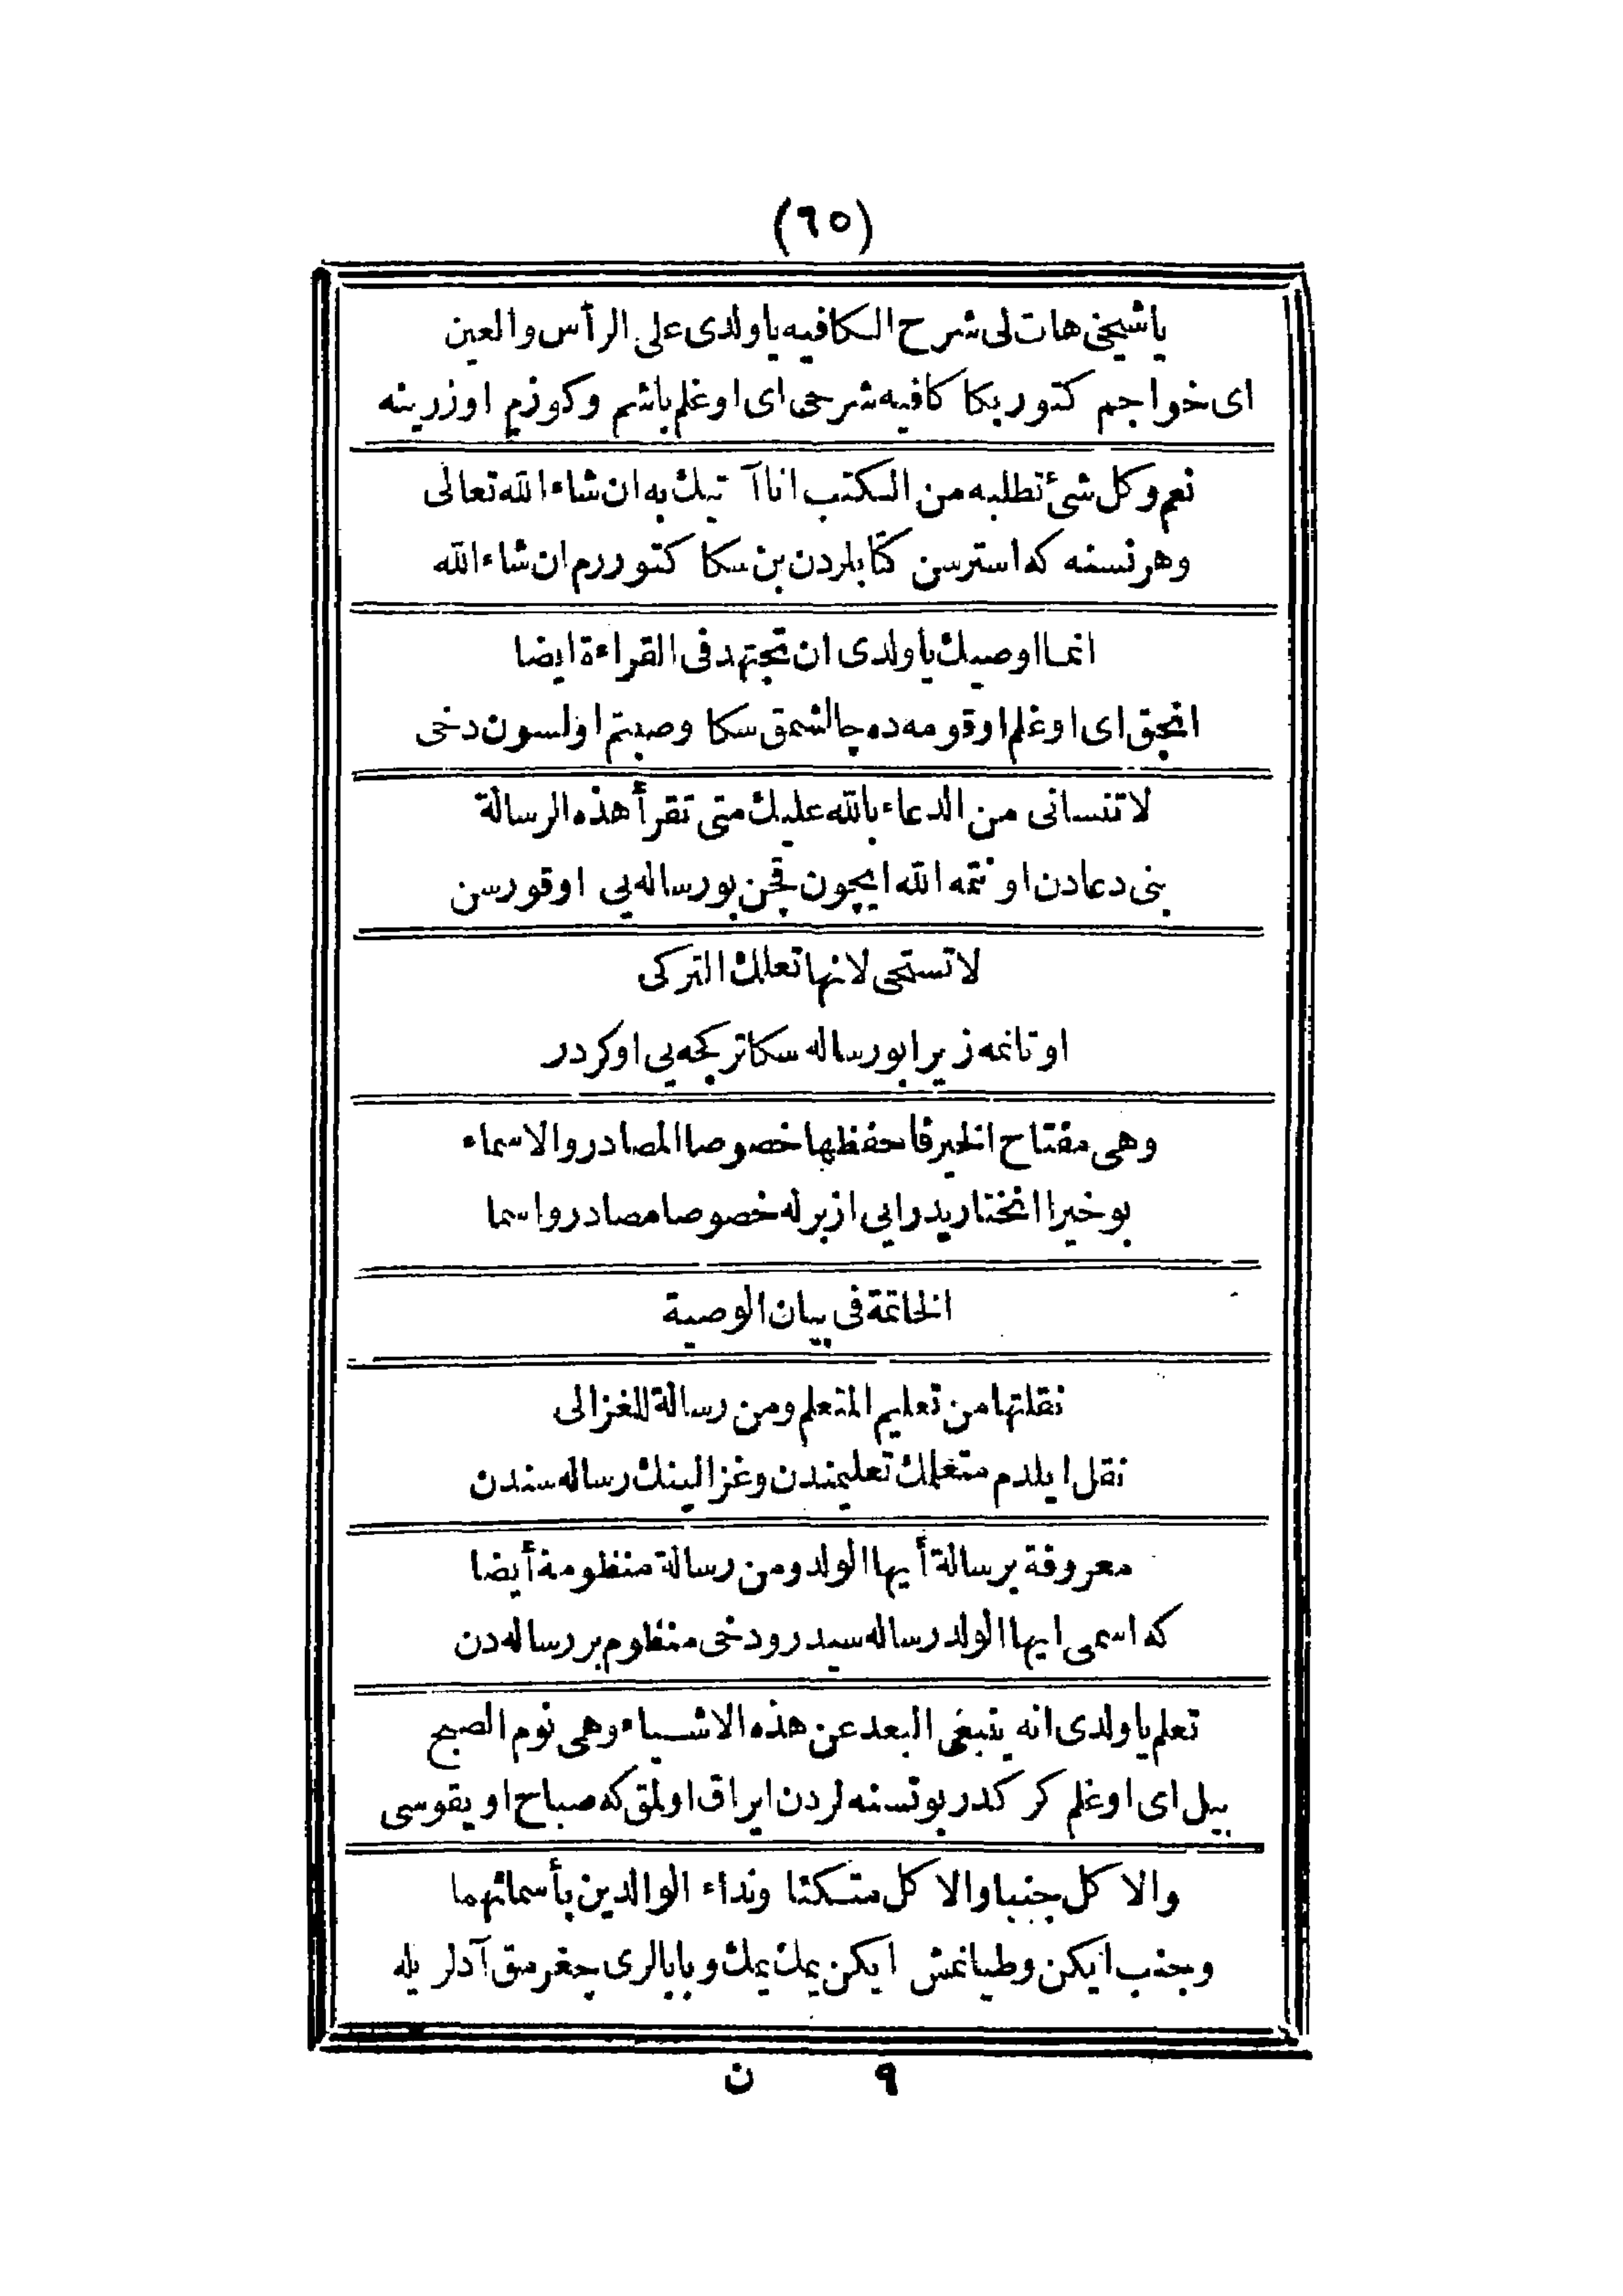 (٦٥)
ياشيخى هات لى شرح الكافيه ياولدى على الرأس والعين
اى خواجم كتور بكا كافيه شرحى اى اوغلم باشم وكوزم اوزرينه
نعم وكل شئ تطلبه من الكتب انا آتيك به ان شاء الله تعالى
وهر نسنه كه استرسن كتابلردن بن سكا كتوررم ان شاء الله
انما اوصيك ياولدى ان تجتهد فى القراءة ايضا
انجق اى اوغلم اوقومه ده چالشمق سكا وصيتم اولسون دخى
لا تنسانى من الدعاء بالله عليك متى تقرأ هذه الرسالة
بنى دعادن اونتمه الله ايچون قچن بو رساله يى اوقورسن
لا تستحى لانها تعلمك التركى
اوتانمه زيرا بو رساله سكا تركجه يى اوكردر
وهى مفتاح الخير فاحفظها خصوصا المصادر والاسماء
بو خيرا انختاريدر ايى ازبرله خصوصا مصادر واسما
الخاتمة فى بيان الوصية
نقلتها من تعليم المتعلم ومن رسالة للغزالى
نقل ايلدم متعلمك تعليمندن وغزالينك رساله سندن
معروفة برسالة أيها الولد ومن رسالة منظومة أيضا
كه اسمى ايها الولد رساله سيدر ودخى منظوم بر رساله دن
تعلم ياولدى انه ينبغى البعد عن هذه الاشياء وهى نوم الصبح
بيل اى اوغلم كركدر بو نسنه لردن ايراق اولمق كه صباح اويقوسى
والاكل جنبا والاكل متكئا ونداء الوالدين بأسمائهما
وجنب ايكن وطيانمش ايكن يمك يمك وبابالرى چغرمق آدلر يله
٩ ن